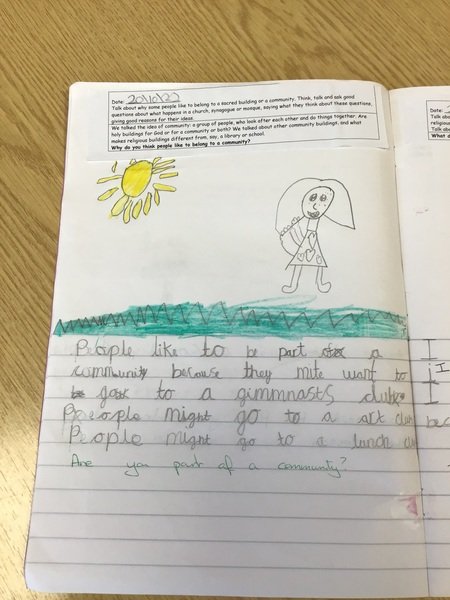 Date:
Talk about why some people like to belong to a sacred building or a community. Think, talk and ask good
questions about what happens in a church, synagogue or mosque, saying what they think about these questions,
giving good reasons for their ideas.
We talked the idea of community: a group of people, who look after each other and do things together. Are
holy buildings for God or for a community or both? We talked about other community buildings, and what
makes religious buildings different from, say, a library or school.
Why do you think people like to belong to a community?
People like to be part a
community because they mite want to
to a gimmnasts club
People might go to a art club
People might go to a lunch
Are you part of a community?
Date:
Talk abo
religious
Talk ab
What
I
I
I
bec